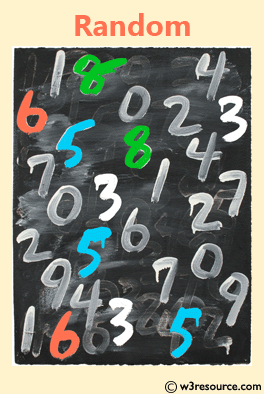 Random
1 8 4
6 0 2 3
5 8 4
7 1 7
0 3 2
2 5 6 0
9 7
4 9
1 6 3 5
© w3resource.com